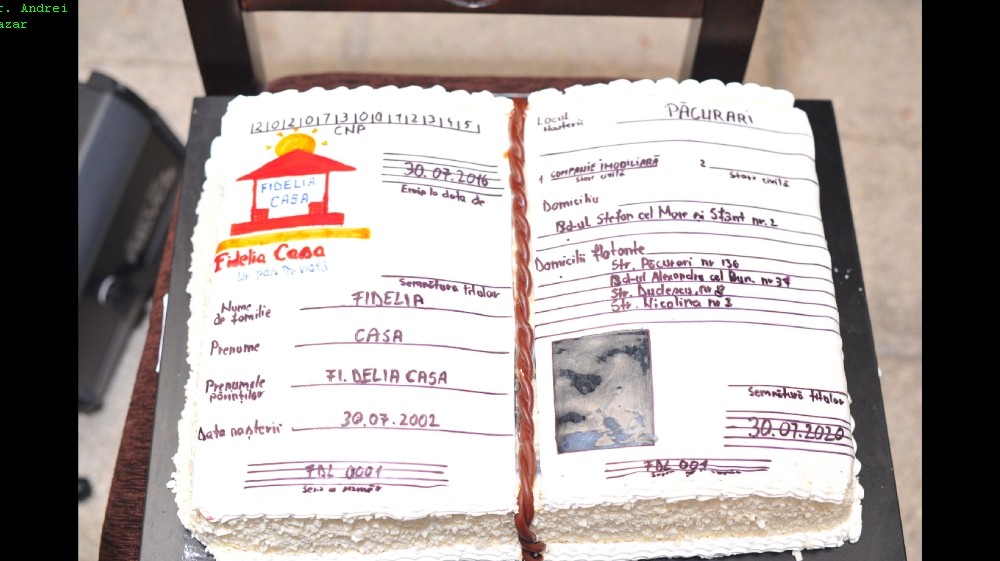 r. Andrei
azar
2020730001712345
CNP
FIDELIA
CASA
30.07.2016
Emis la data de
Fidelia Casa
Un pas
Semnătura titular
Nume
de familie
FIDELIA
Prenume
CASA
Prenumele
părinților
FI. DELIA CASA
Data nașterii
30.07.2002
FDL 0001
Locul
Nașterii
PĂCURARI
1 COMPANIE IMOBILIARĂ
Stare civilă
2
Stare civilă
Domiciliu
Bd-ul Stefan cel Mare și Sfânt nr. 2
Domicilii flotante
Str. Păcurari nr 136
Bd-ul Alexandru cel Bun. nr 34
Str. Dudescu, nr 8
Str. Nicolina nr 2
Semnătura titular
30.07.2020
FDL 001